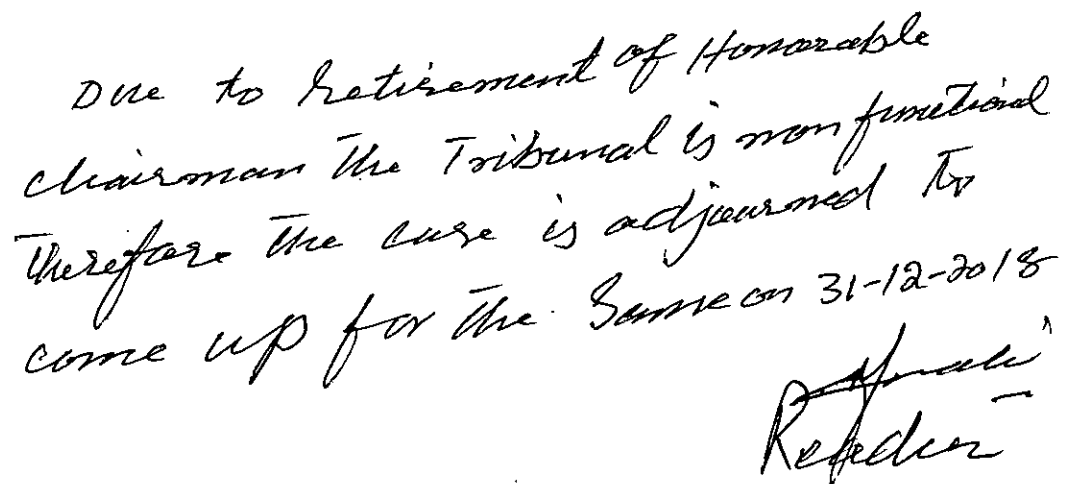 Due to Retirement of Honorable
chairman the Tribunal is non functional
therefore the case is adjourned to
come up for the Same on 31-12-2018
Reader